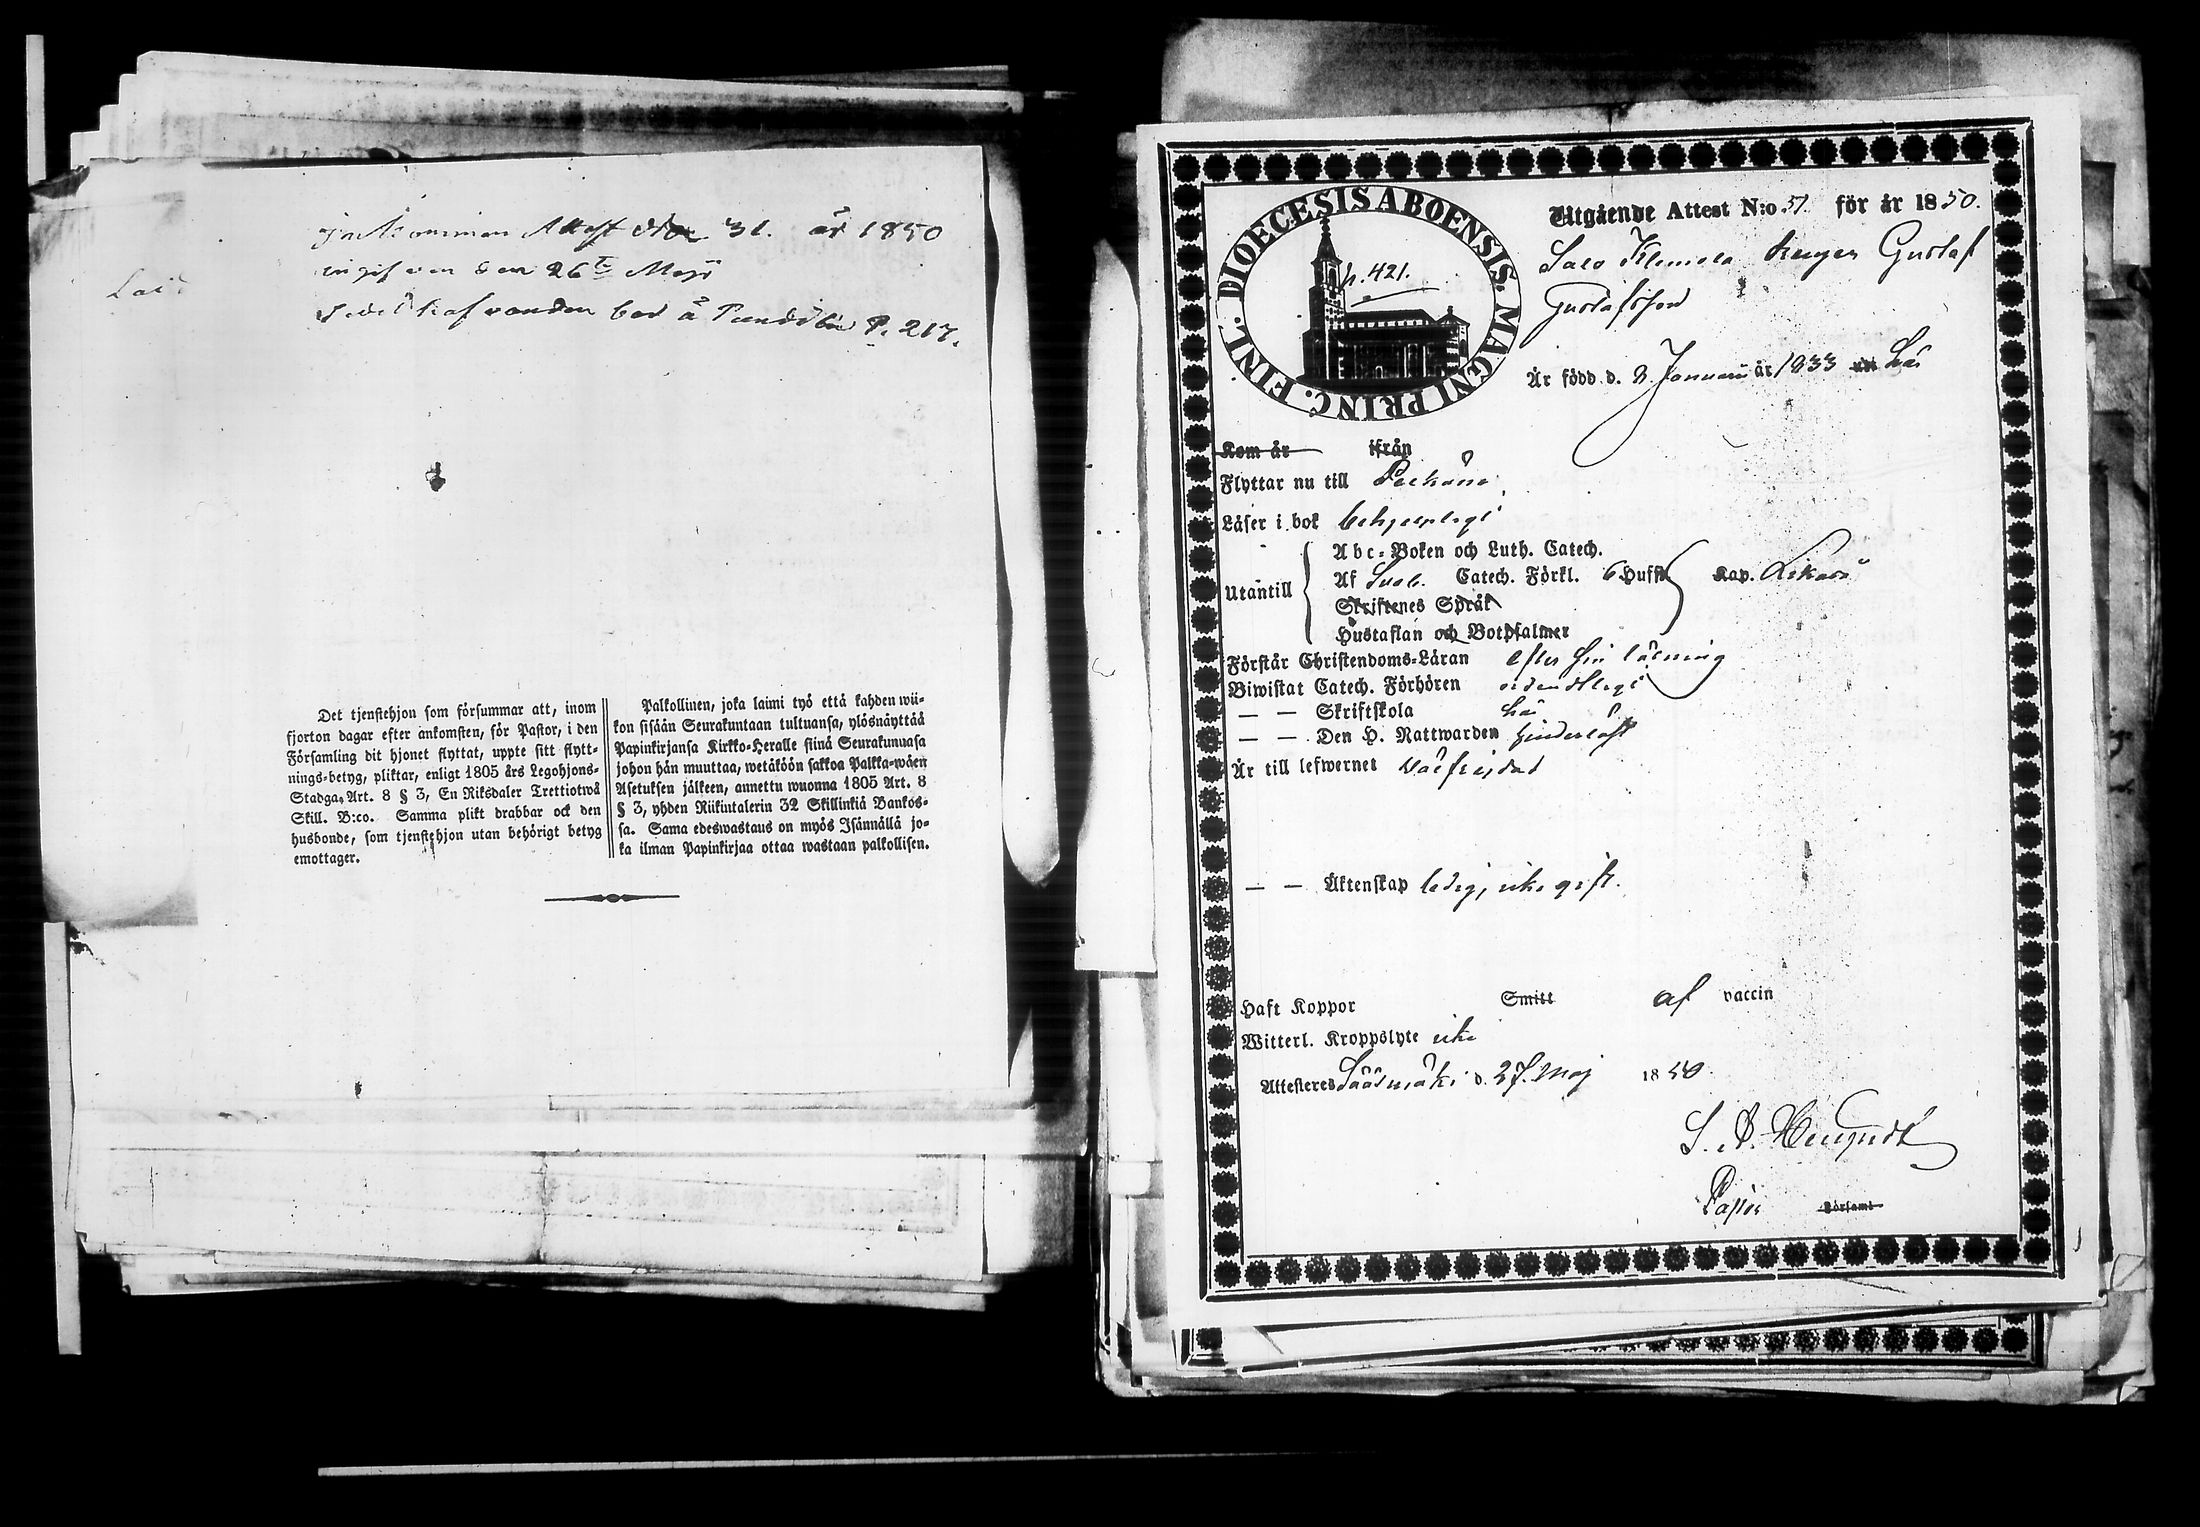 Inkommen Attest N:o 31. år 1850
ingifven den 26te Maji
Sedelhafvanden bor å Pundola P. 217.
Det tjenstehjon som försummar att, inom
fjorton dagar efter ankomsten, för Pastor, i den
Församling dit hjonet flyttat, uppte sitt flytt-
nings-betyg, pliktar, enligt 1805 års Legohjons-
Stadga, Art. 8 § 3, En Riksdaler Trettiotwå
Skill. B:co. Samma plikt drabbar ock den
husbonde, som tjenstehjon utan behörigt betyg
emottager.
Palkollinen, joka laimi työ että kahden wii-
kon sisään Seurakuntaan tultuansa, ylösnäyttää
Papinkirjansa Kirkko-Herralle siinä Seurakunnasa
johon hän muuttaa, wetäköön sakkoa Palkka-wäen
Asetuksen jälkeen, annettu wuonna 1805 Art. 8
§ 3, yhden Riikintalerin 32 Skillinkiä Bankos-
sa. Sama edeswastaus on myös Isännällä jo-
ka ilman Papinkirjaa ottaa wastaan palkollisen.
DIOECESIS ABOENSIS. MAGNI PRINC. FINL.
p. 421.
Utgående Attest N:o 31. för år 1850.
Salo Klemola drengen Gustaf
Gustafsson
Är född d. 8 Januari år 1833 här
Kom år ifrån
Flyttar nu till Pelkäne
Läser i bok behjelpligt
Utantill
Abc-Boken och Luth. Catech.
Af Sveb. Catech. Förkl. 6 Hufst. Kap. Likaså
Skriftenes Språk
Hustaflan och Botpsalmer
Förstår Christendoms-Läran efter sin läsning
Biwistat Catech. Förhören ordentligt
— — Skriftskola här
— — Den H. Nattwarden hinderlöst
Är till lefwernet välfrejdad
— — Äktenskap ledig, icke gift.
Haft Koppor Smitt af vaccin
Witterl. Kroppslyte icke
Attesteres Sääsmäki d. 27. Maj 1850.
Pastor Församl